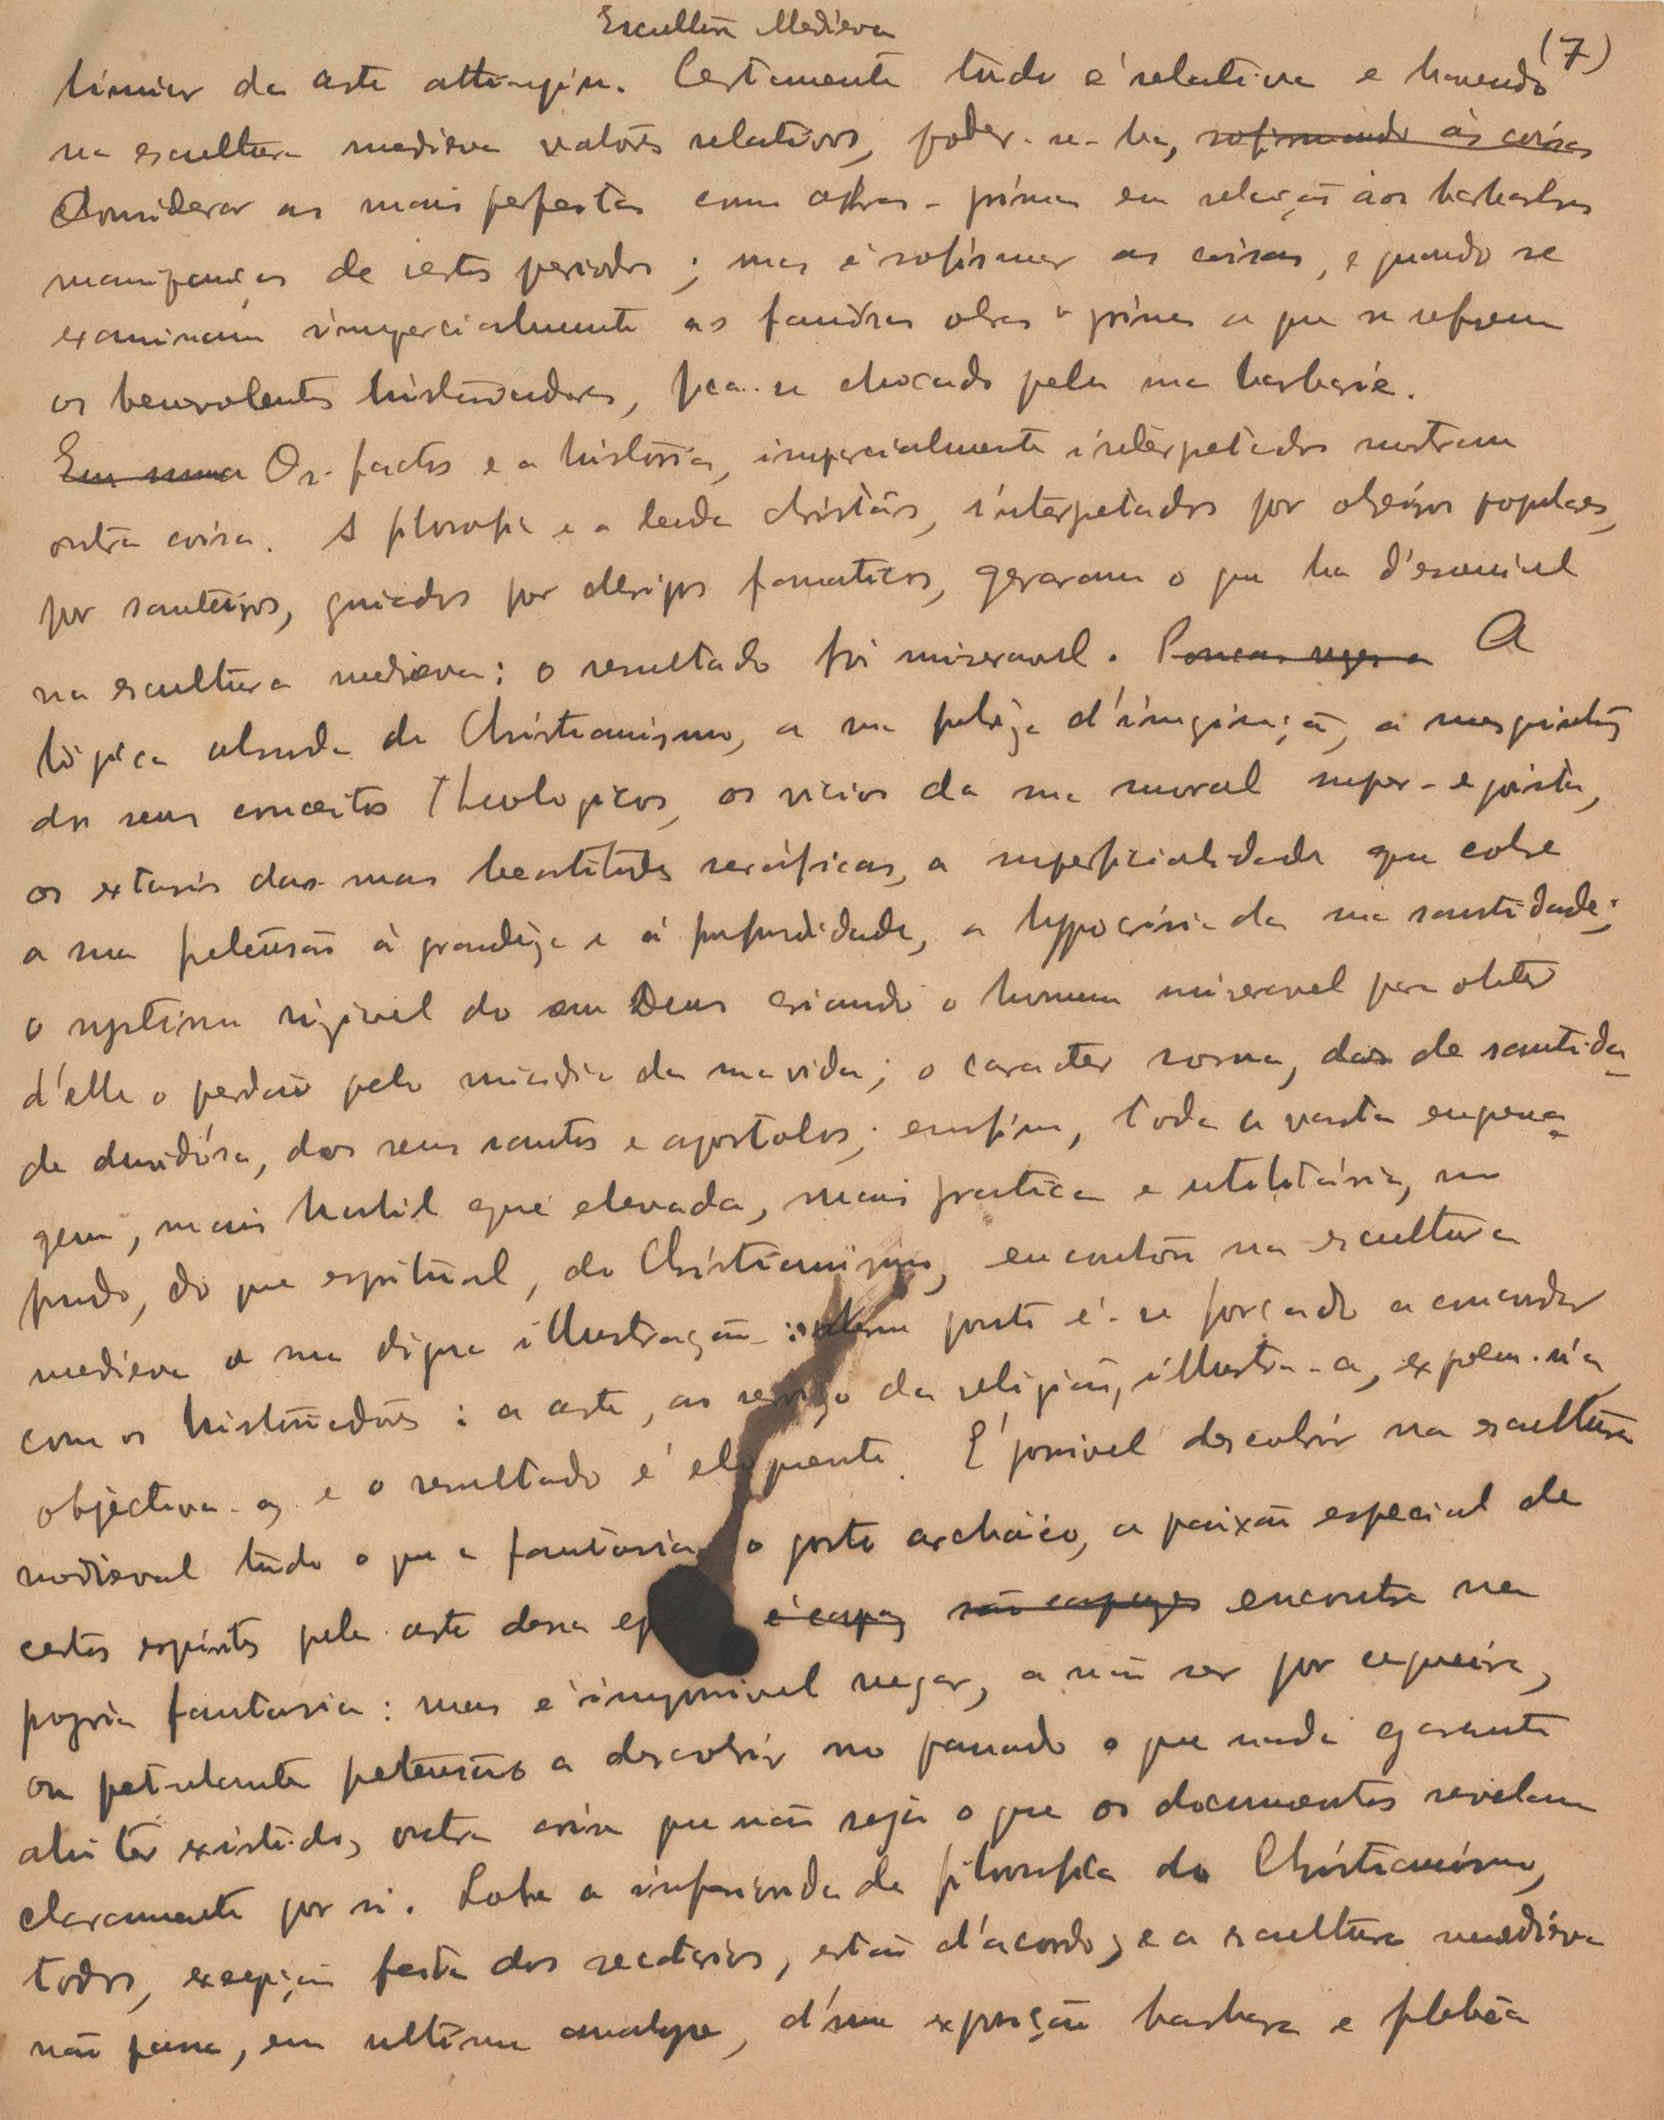 Escultura Medieva
(7)
limiar da arte attingiu. Certamente tudo é relativo e havendo
na escultura medieva valores relativos, poder-se-ha, sofismando as coisas
Considerar as mais perfeitas como obras-primas em relação aos barbarbros
manipanços de certos periodos; mas é sofismar as coisas, e quando se
examinam imparcialmente as famosas obras-primas a que se referem
os benevolentes historiadores, fica-se chocado pela sua barbarie.
Em suma Os factos e a historia, imparcialmente interpetados mostram
outra coisa. A filosofia e a lenda christãs, interpetados por obreiros populares,
por santeiros, guiados por clerigos fanaticos, geraram o que ha d'esculural
na escultura medieva: o resultado foi miseravel. Poucas vezes a A
lógica absurda do Christianismo, a sua pobreza d'imaginação, a mesquinhez
dos seus conceitos theologicos, os vicios da sua moral super-egoista,
os extasis das suas beatitudes seraficas, a superficialidade que cobre
a sua pretensão á grandeza e á profundidade, a hypocrisia da sua santidade;
o systema risivel do seu Deus criando o homem miseravel para obter
d'elle o perdão pela miseria da sua vida; o caracter sorna, das de santida-
de duvidósa, dos seus santos e apostolos; emfim, toda a vasta engrena-
gem, mais habil que elevada, mais pratica e utilitária, no
fundo, do que espiritual, do Christianismo, encontrou na escultura
medieva a sua digna illustração: n'este ponto é-se forçado a concordar
com os historiadores: a arte, ao serviço da religião, illustra-a, expõem-n'a,
objectiva-a, e o resultado é eloquente. É possivel descobrir na escultura
medieval tudo o que a fantasia, o gosto archáico, a paixão especial de
certos espiritos pela arte dessa ep é capaz são capazes encontra na
propria fantasia: mas é impossivel negar, a não ser por cegueira,
ou petulante petensão a descobrir no passado o que nada garante
ahi ter existido, outra coisa que não seja o que os documentos revelam
claramente por si. Sobre a inferioridade filosofica do Christianismo,
todos, excepção feita dos sectarios, estão d'acordo; e a escultura medieva
não passa, em ultima analyse, d'uma exposição barbara e plebêa